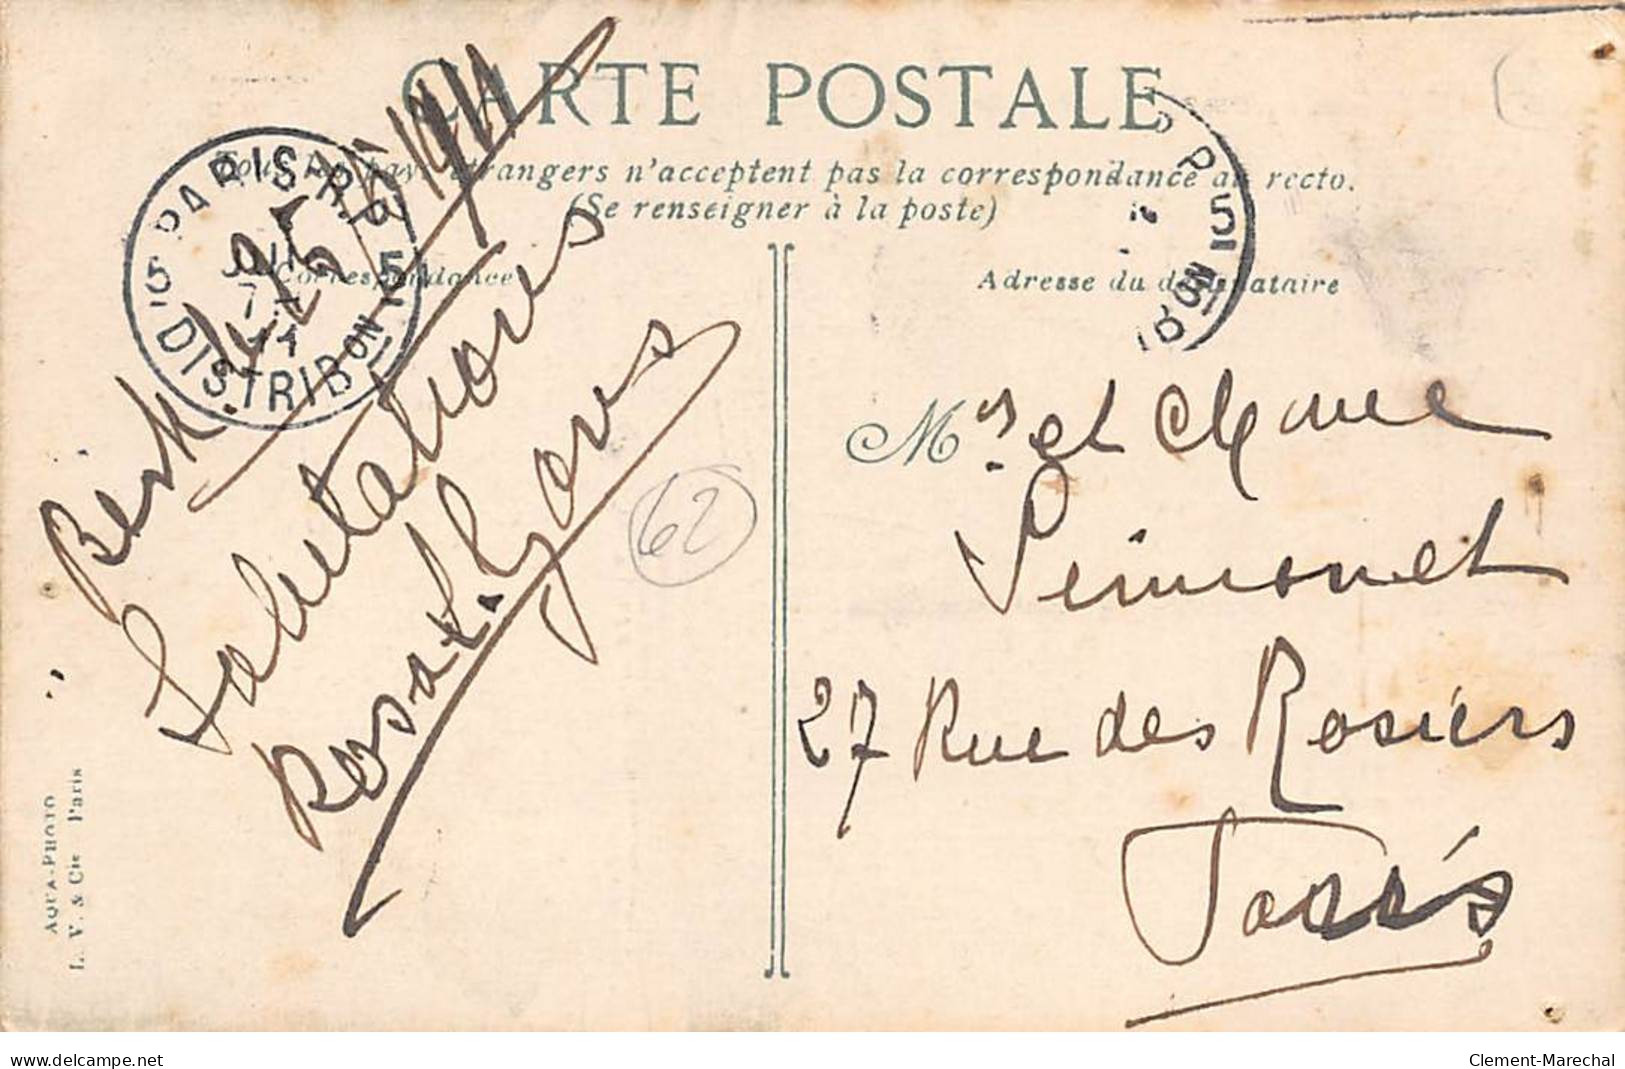 CARTE POSTALE
Tous les pays étrangers n'acceptent pas la correspondance au recto.
(Se renseigner à la poste)
Correspondance
Adresse du destinataire
PARIS R. P. 5 DISTRIBON 5
Berk
1911
Salutations
Rosa
62
Mrs et Mme
27 Rue des Rosiers
Paris
AQUA-PHOTO
L. V. & Cie Paris
delcampe.net
Clement-Marechal